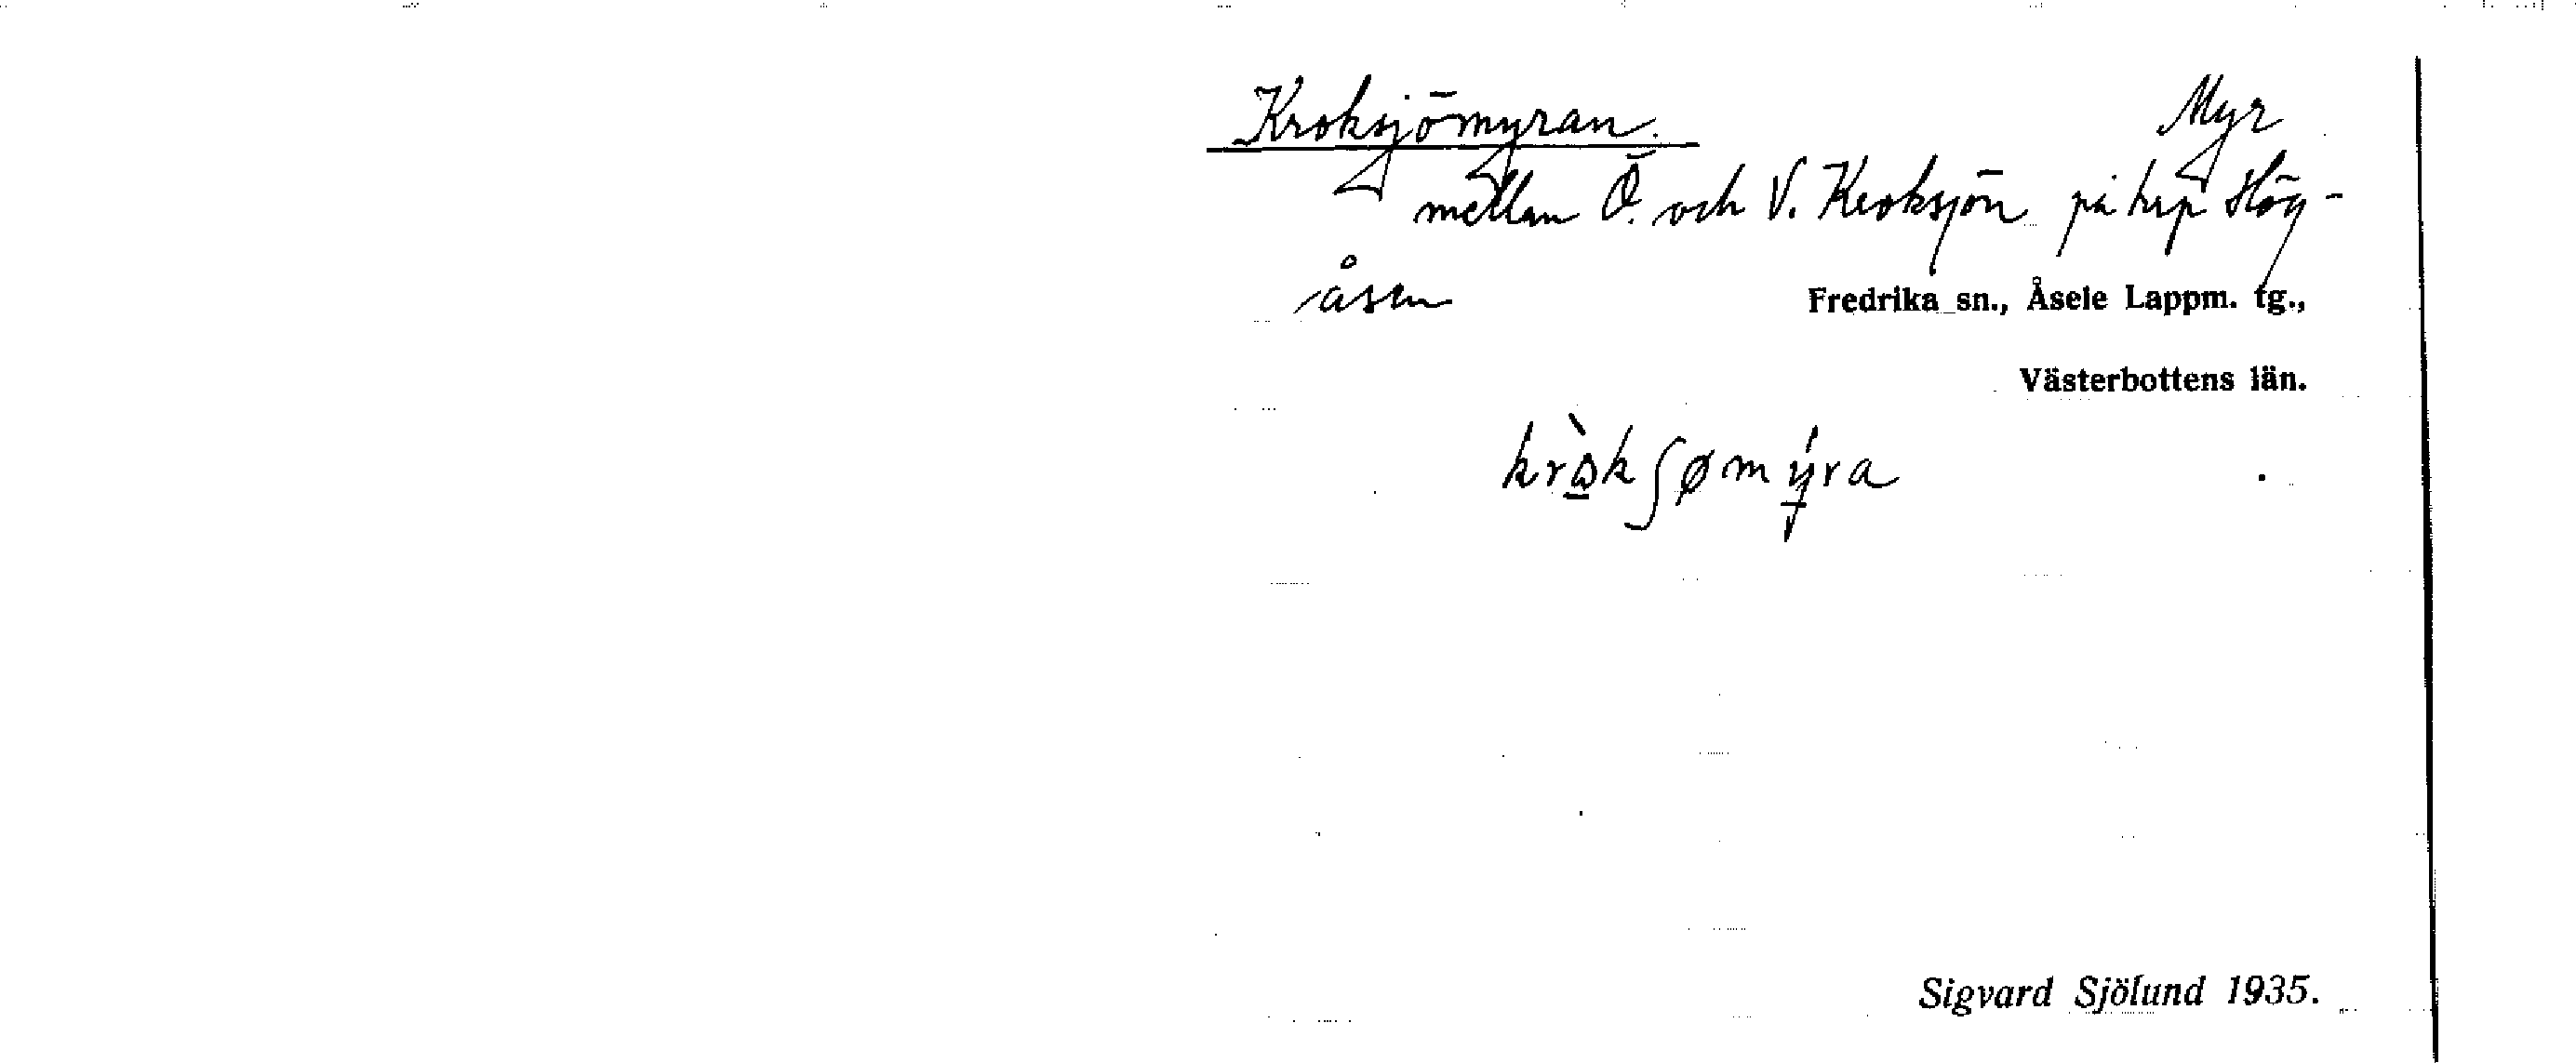 Kroksjömyran. Myr
mellan Ö. och V. Kroksjön på krp Hög-
åsen
Fredrika sn., Åsele Lappm. tg.,
Västerbottens län.
kròkʃømýra
Sigvard Sjölund 1935.